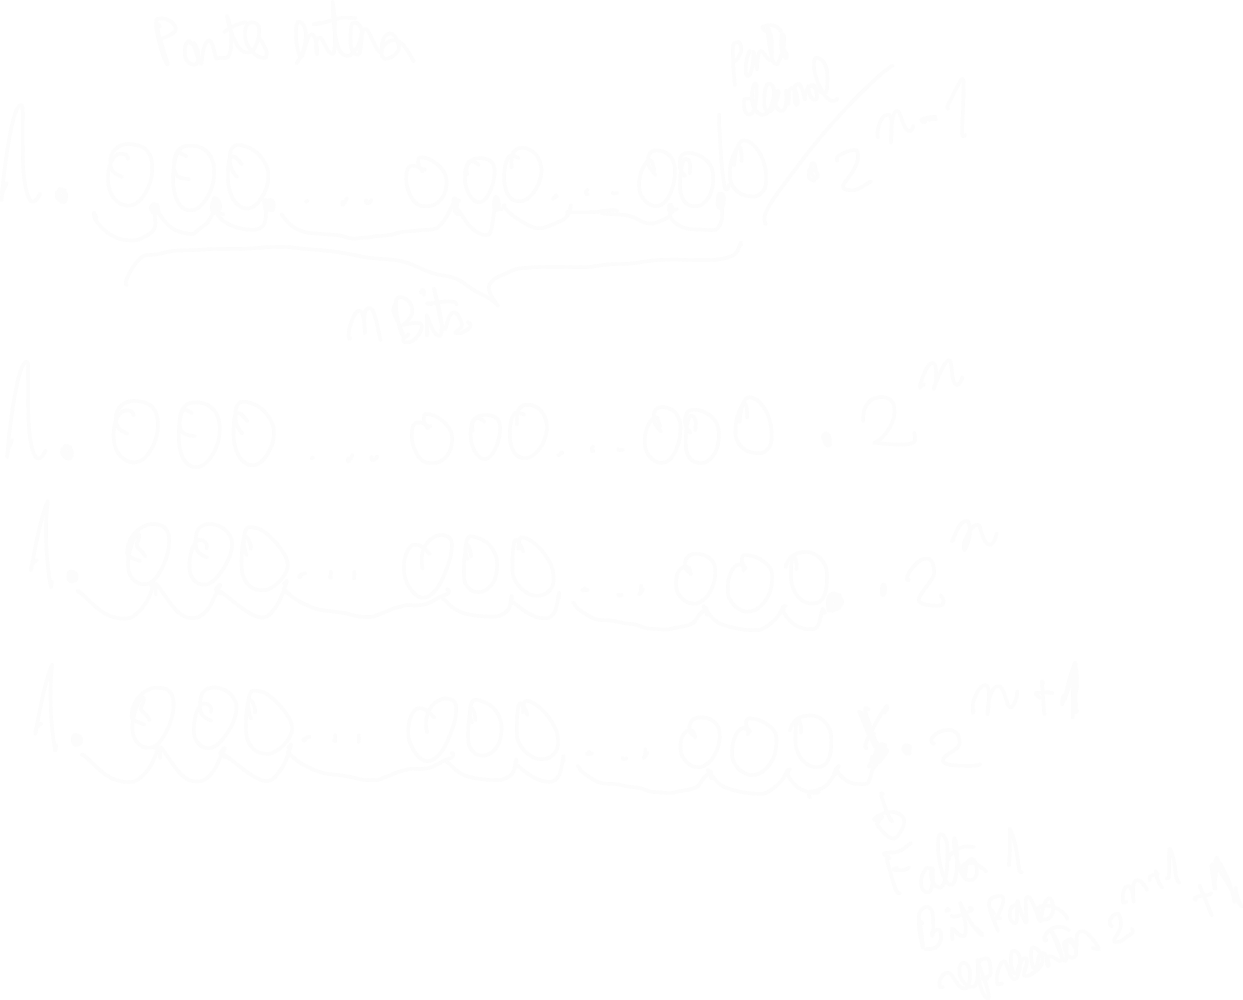 Parte Entera
Parte
decimal
1. 000 ... 000 ... 00.0 · 2^{n-1}
n Bits
1. 000 ... 000 ... 000 · 2^n
1. 000 ... 000 ... 000. · 2^n
1. 000 ... 000 ... 000 x. · 2^{n+1}
Falta 1
Bit para
representar 2^{n+1} + 1